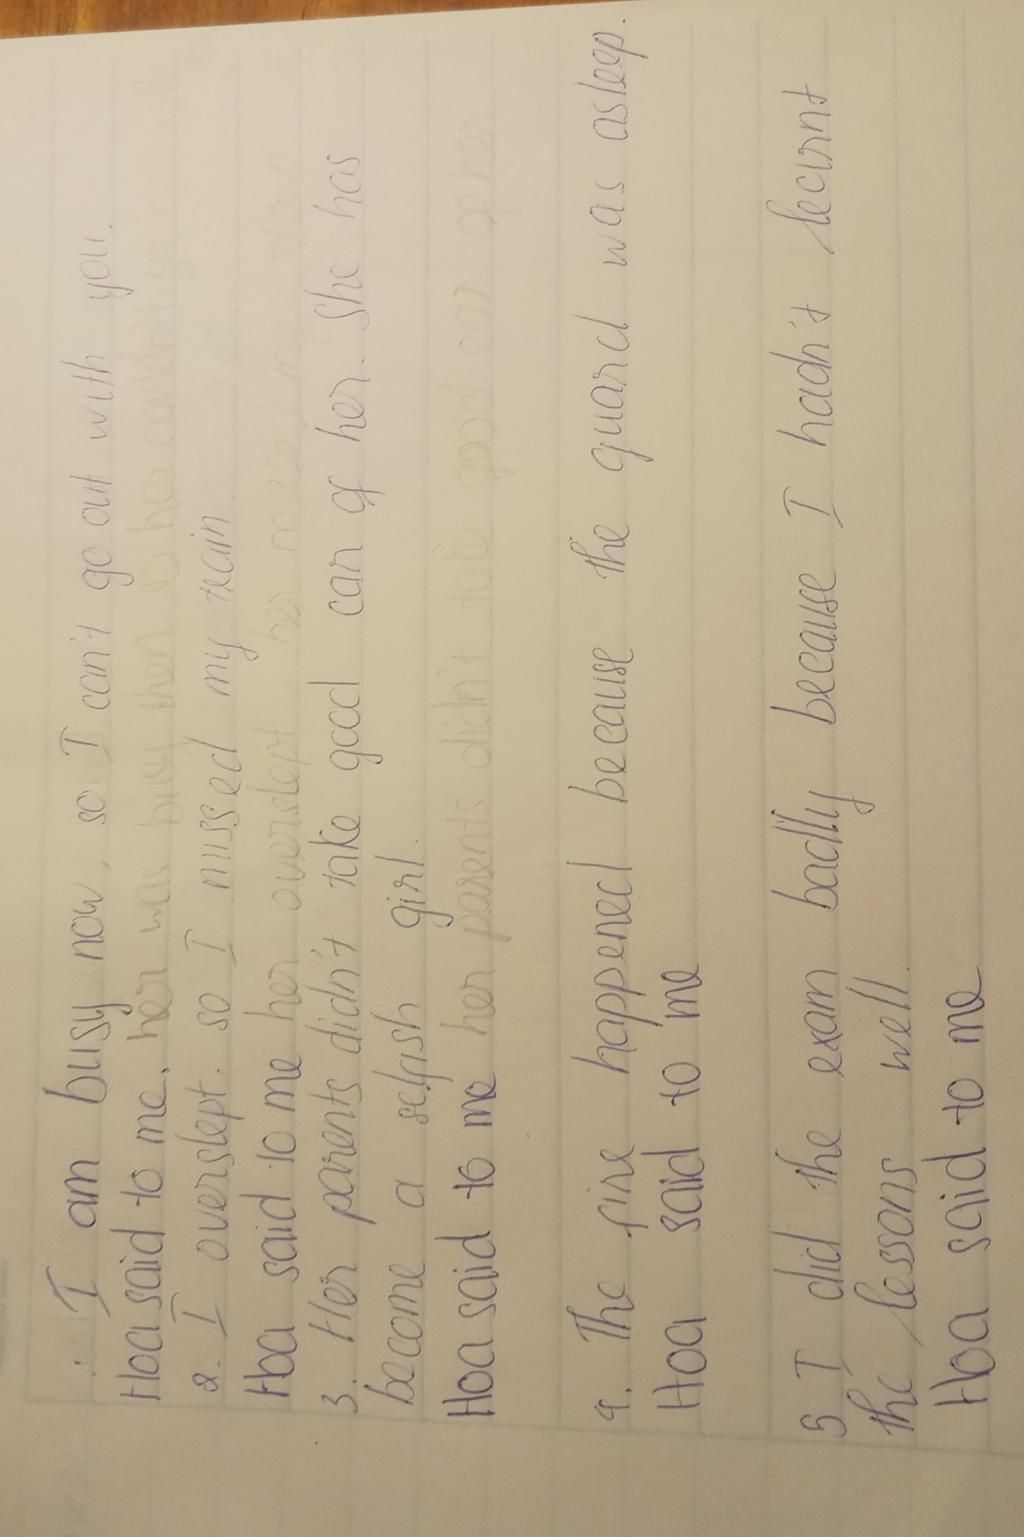 I am busy now, so I can't go out with you.
Hoa said to me, her was busy then so her couldn't go out
2. I overslept. so I missed my train
Hoa said to me her overslept her missed my train
3. Her parents didn't take good car of her. She has
become a selfish girl.
Hoa said to me her parents didn't take good car of her
4. The fire happened because the guard was asleep.
Hoa said to me
5 I did the exam badly because I hadn't learnt
the lessons well
Hoa said to me